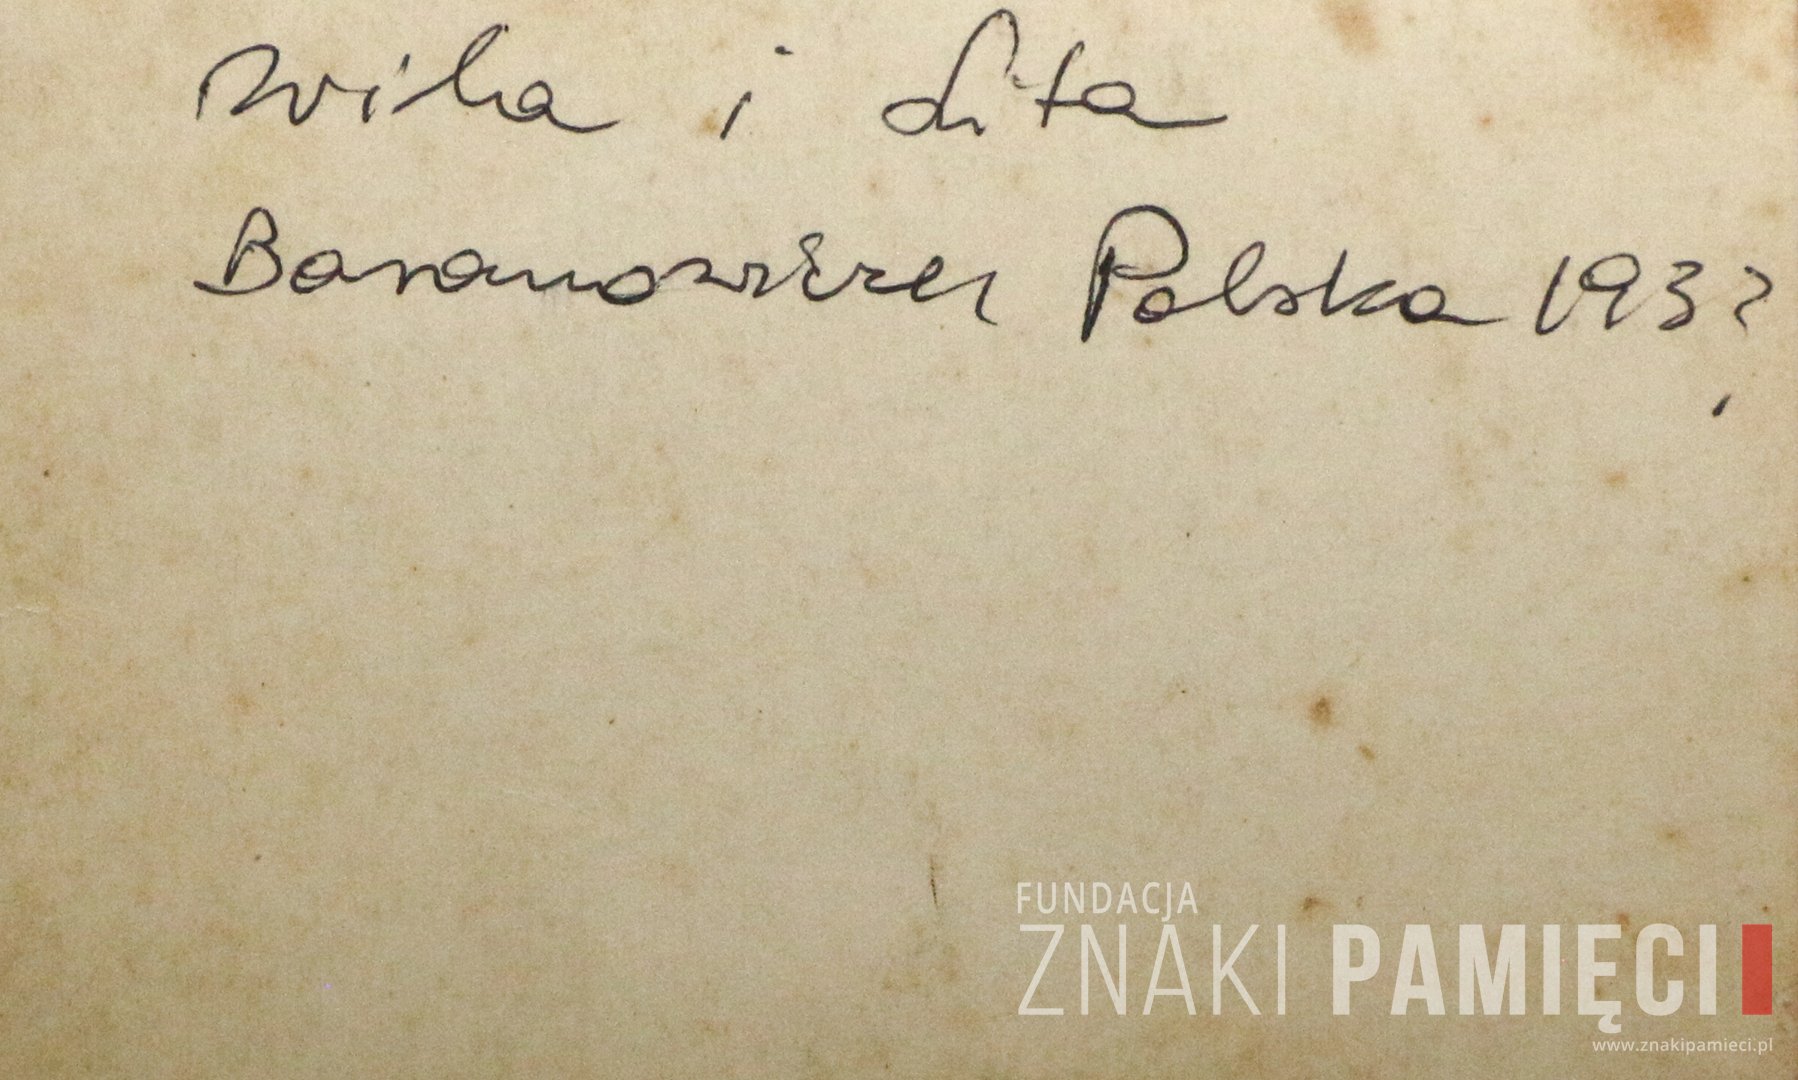 i Lita
Baranowicze Polska 193?
FUNDACJA
ZNAKI PAMIĘCI
www.znakipamieci.pl